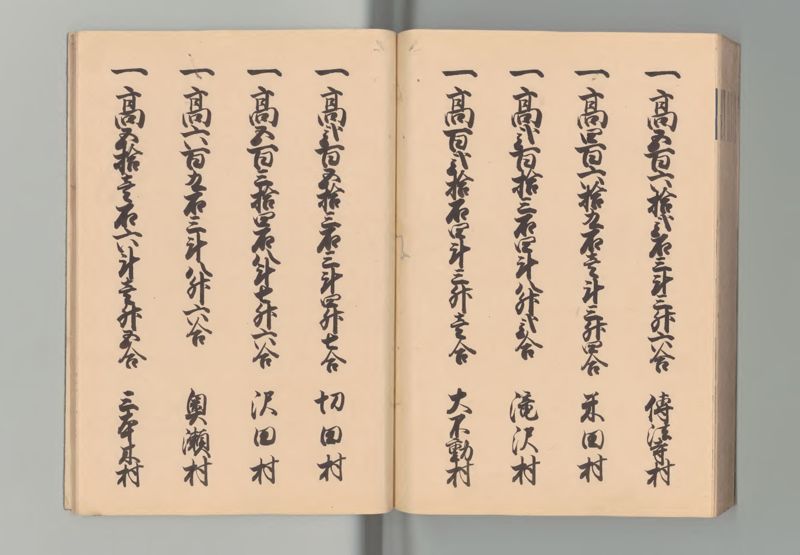 一高五百六拾弐石三斗三升六合 傳法寺村
一高四百六拾九石壱斗三升四合 米田村
一高弐百拾三石四斗八升弐合 滝沢村
一高百弐拾石四斗三升壱合 大不動村
一高弐百五拾三石三斗四升七合 切田村
一高五百三拾四石八斗七升六合 沢田村
一高六百九石三斗八升六合 奥瀬村
一高五拾壱石六斗壱升五合 三本木村